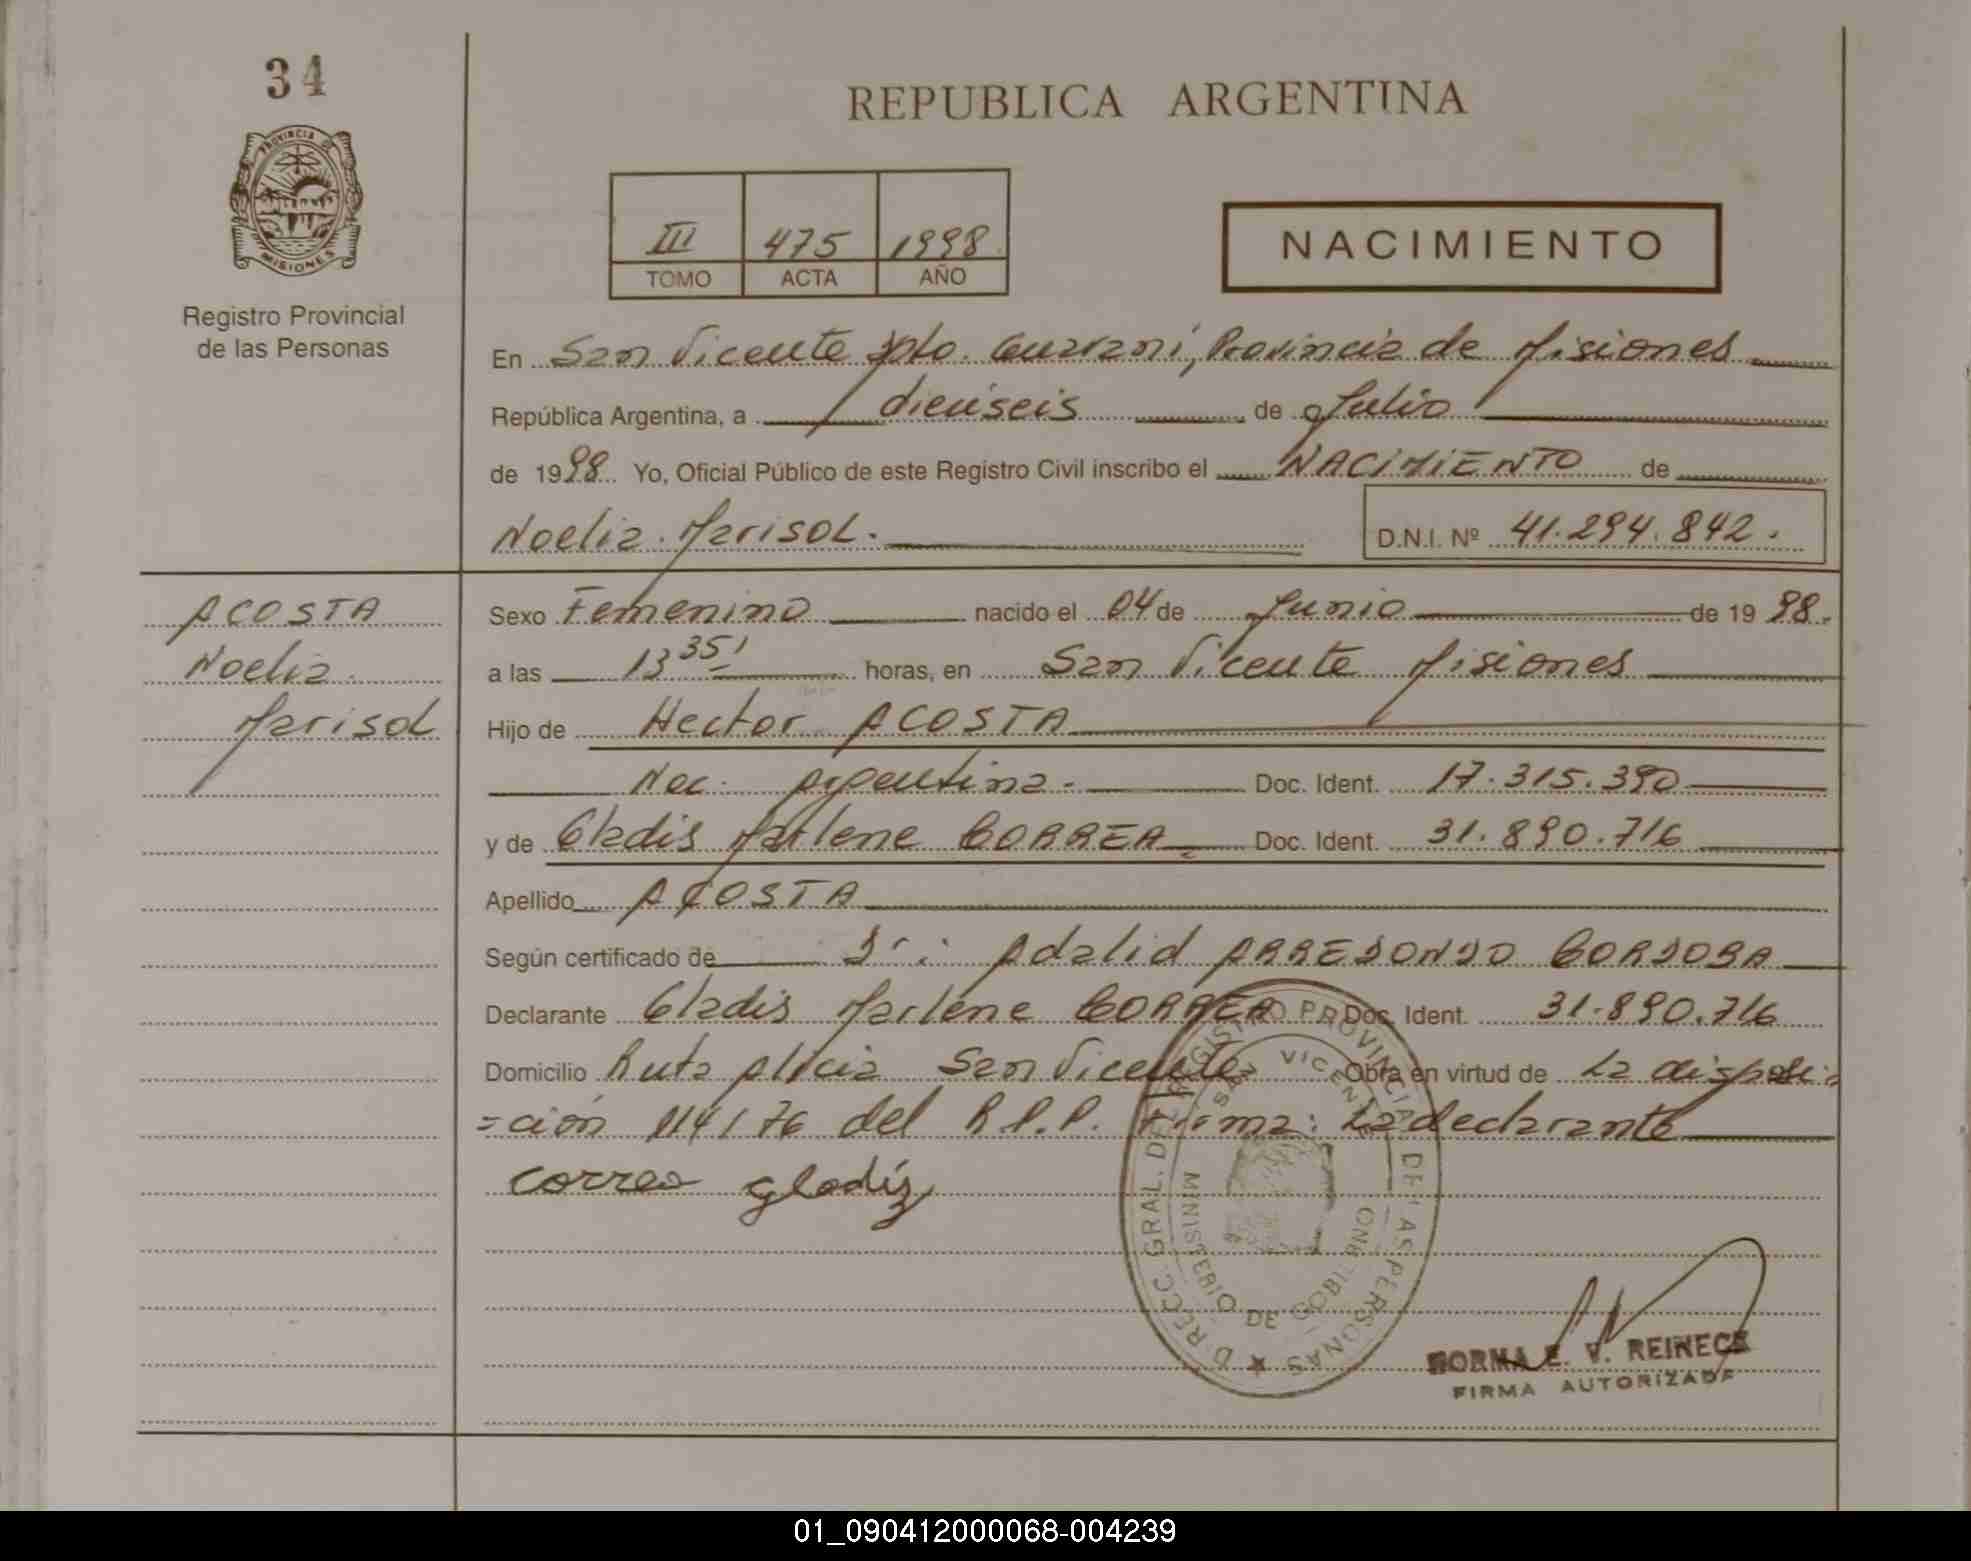 34
REPUBLICA ARGENTINA
PROVINCIA DE
MISIONES
Registro Provincial
de las Personas
III 475 1998
TOMO ACTA AÑO
NACIMIENTO
En San Vicente Dpto. Guarani, Provincia de Misiones
República Argentina, a dieciseis de Julio
de 1998 Yo, Oficial Público de este Registro Civil inscribo el NACIMIENTO de
Noelia Marisol. D.N.I. Nº 41.294.842.
ACOSTA
Noelia
Marisol
Sexo Femenino nacido el 04 de Junio de 1998.
a las 13 35' horas, en San Vicente Misiones
Hijo de Hector ACOSTA
Nac. Argentina. Doc. Ident. 17.315.390
y de Gladis Marlene CORREA Doc. Ident. 31.890.716
Apellido ACOSTA
Según certificado de Dr: Adalid ARREDONDO CORDOBA
Declarante Gladis Marlene CORREA Doc. Ident. 31.890.716
Domicilio Ruta Alicia San Vicente Obra en virtud de La disposi-
=ción 114/76 del R.P.P. Firma: La declarante
correa gladiz
DIRECC. GRAL. DEL REGISTRO PROVINCIAL DE LAS PERSONAS
SAN VICENTE
MINISTERIO DE GOBIERNO
NORMA E. V. REINECK
FIRMA AUTORIZADA
01_090412000068-004239